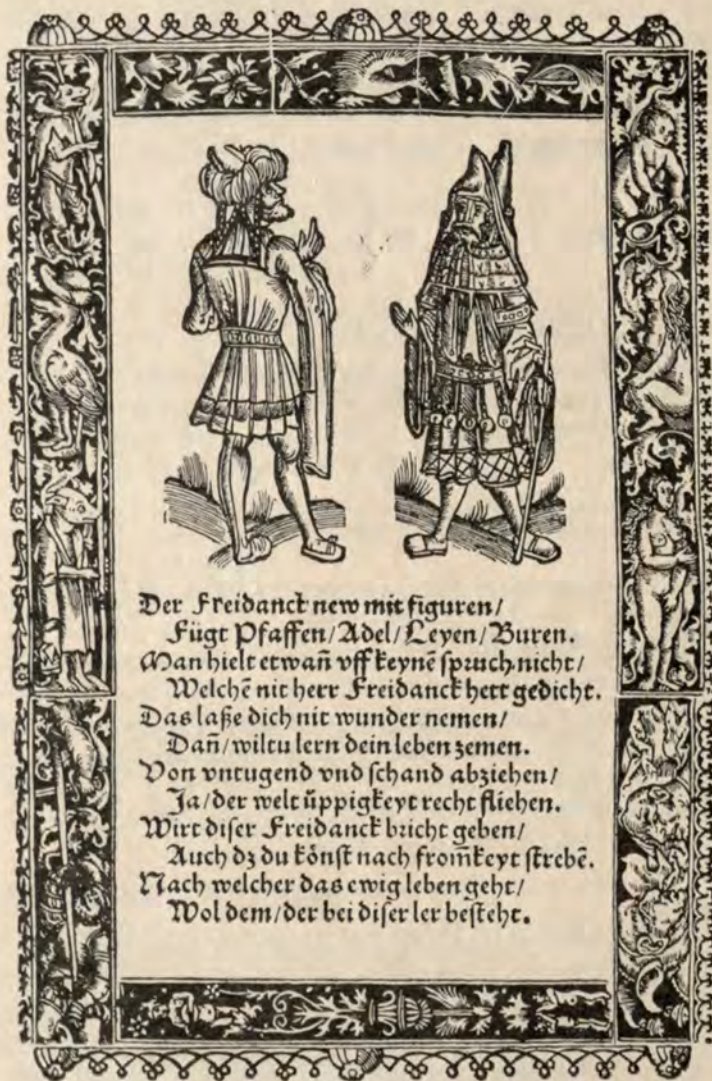 Der Freidanck new mit figuren/
Fügt Pfaffen/Adel/Leyen/Buren.
Man hielt etwañ vff keynē ſpruch nicht/
Welchē nit herr Freidanck hett gedicht.
Das laße dich nit wunder nemen/
Dañ/wiltu lern dein leben zemen.
Von vntugend vnd ſchand abziehen/
Ja/der welt üppigkeyt recht fliehen.
Wirt diſer Freidanck bricht geben/
Auch dz du könſt nach from̄keyt ſtrebē.
Nach welcher das ewig leben geht/
Wol dem/der bei diſer ler beſteht.